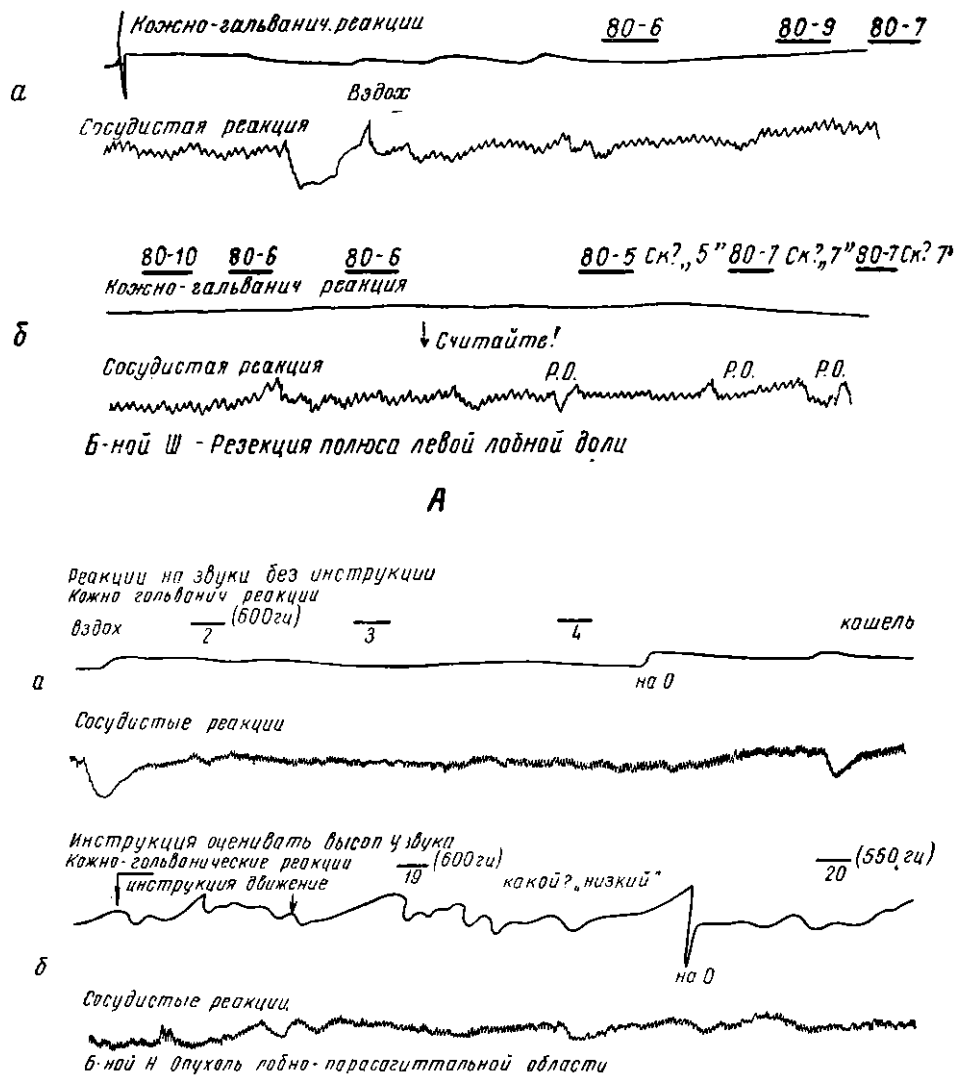 Кожно-гальванич. реакции 80-6 80-9 80-7
а
Вздох
Сосудистая реакция
80-10 80-6 80-6 80-5 Ск? „5” 80-7 Ск? „7” 80-7 Ск? 7”
Кожно-гальванич реакция
б
Считайте!
Сосудистая реакция Р.О. Р.О. Р.О.
Б-ной Ш - Резекция полюса левой лобной доли
А
Реакции на звуки без инструкции
Кожно гальванич реакции
вздох 2 (600гц) 3 4 кашель
а
на 0
Сосудистые реакции
Инструкция оценивать высоту звука
Кожно-гальванические реакции 19 (600гц) 20 (550 гц)
инструкция движение какой? „низкий”
на 0
б
Сосудистые реакции.
Б-ной Н Опухоль лобно-парасагиттальной области